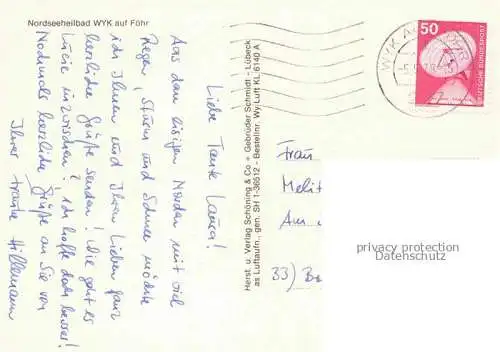 Nordseeheilbad WYK auf Föhr
Liebe Tante Laura!
Aus dem eisigen Norden mit viel
Regen, Sturm und Schnee möchte
ich Ihnen und Ihren Lieben ganz
herzliche Grüße senden! Wie geht es
inzwischen? Ich hoffe doch besser!
Nochmals herzliche Grüße an Sie von
Ihrer Frauke Hillemann
Herst. u. Verlag Schöning & Co + Gebrüder Schmidt - Lübeck
as Luftaufn., gen. SH 1-36512 - Bestellnr. Wy.Luft KL 6140 A
50
DEUTSCHE BUNDESPOST
WYK
Frau
Melit
Am
33) B
privacy protection
Datenschutz